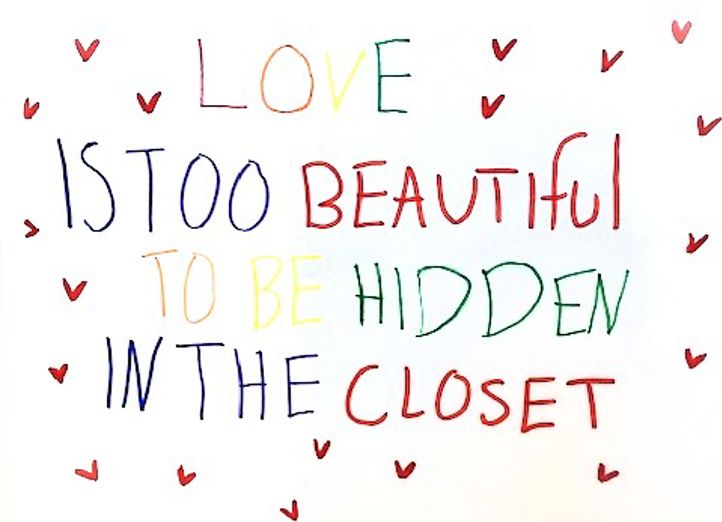 LOVE
IS TOO BEAUTIful
TO BE HIDDEN
IN THE CLOSET